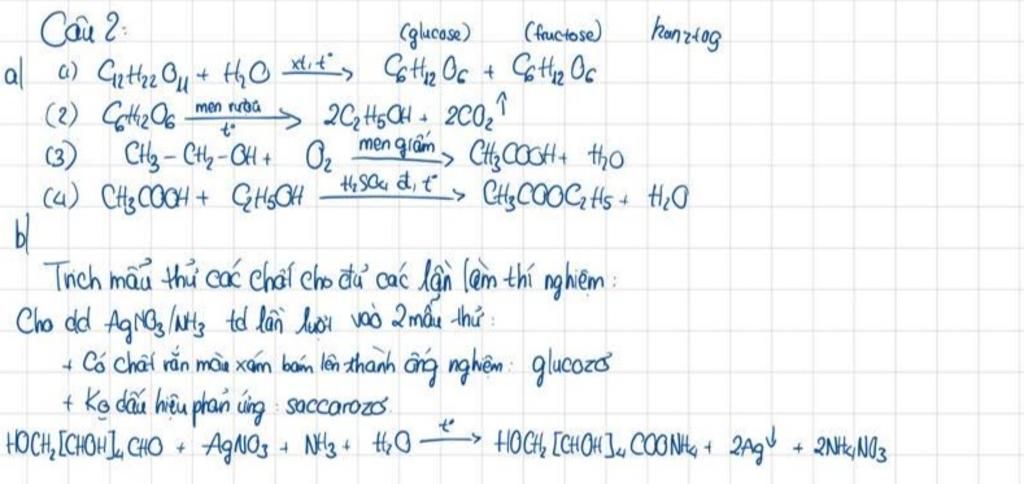 Câu 2: (glucose) (fructose) konztog
a) (1) C12H22O11 + H2O xt, t° → C6H12O6 + C6H12O6
(2) C6H12O6 men rượu t° → 2C2H5OH + 2CO2↑
(3) CH3-CH2-OH + O2 men giấm → CH3COOH + H2O
(4) CH3COOH + C2H5OH H2SO4 đ, t° → CH3COOC2H5 + H2O
b)
Trích mẫu thử các chất cho đủ các lần làm thí nghiệm:
Cho dd AgNO3/NH3 td lần lượt vào 2 mẫu thử:
+ Có chất rắn màu xám bám lên thành ống nghiệm: glucozơ
+ Ko dấu hiệu phản ứng: saccarozơ
HOCH2[CHOH]4CHO + AgNO3 + NH3 + H2O t° → HOCH2[CHOH]4COONH4 + 2Ag↓ + 2NH4NO3